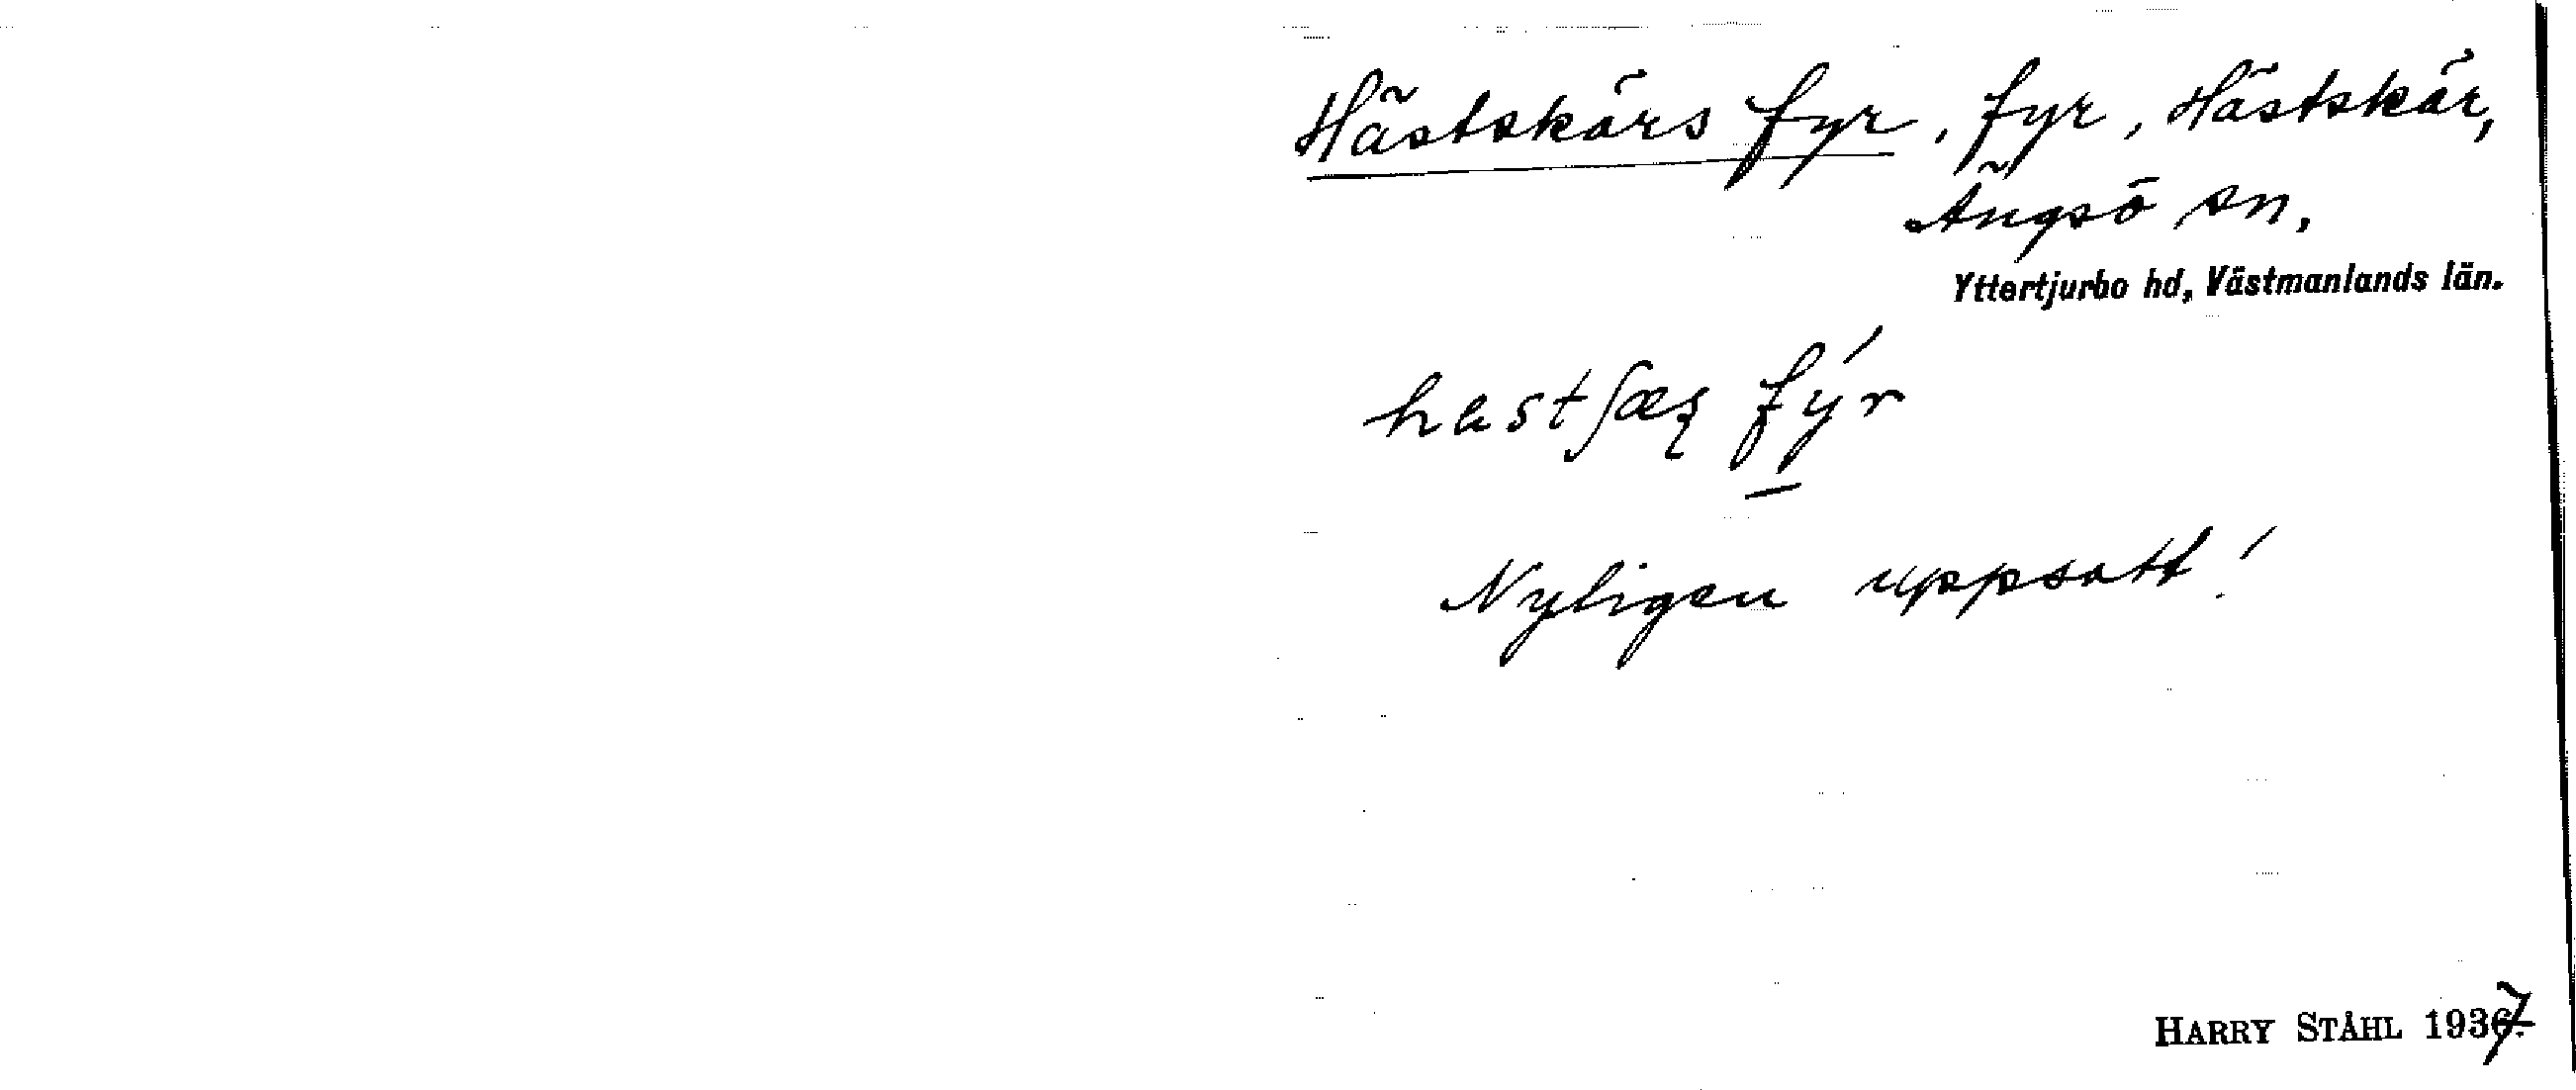 Hästskärs fyr, fyr, Hästskär,
Ängsö sn.
Yttertjurbo hd, Västmanlands län.
fýr
Nyligen uppsatt!
HARRY STÅHL 1937